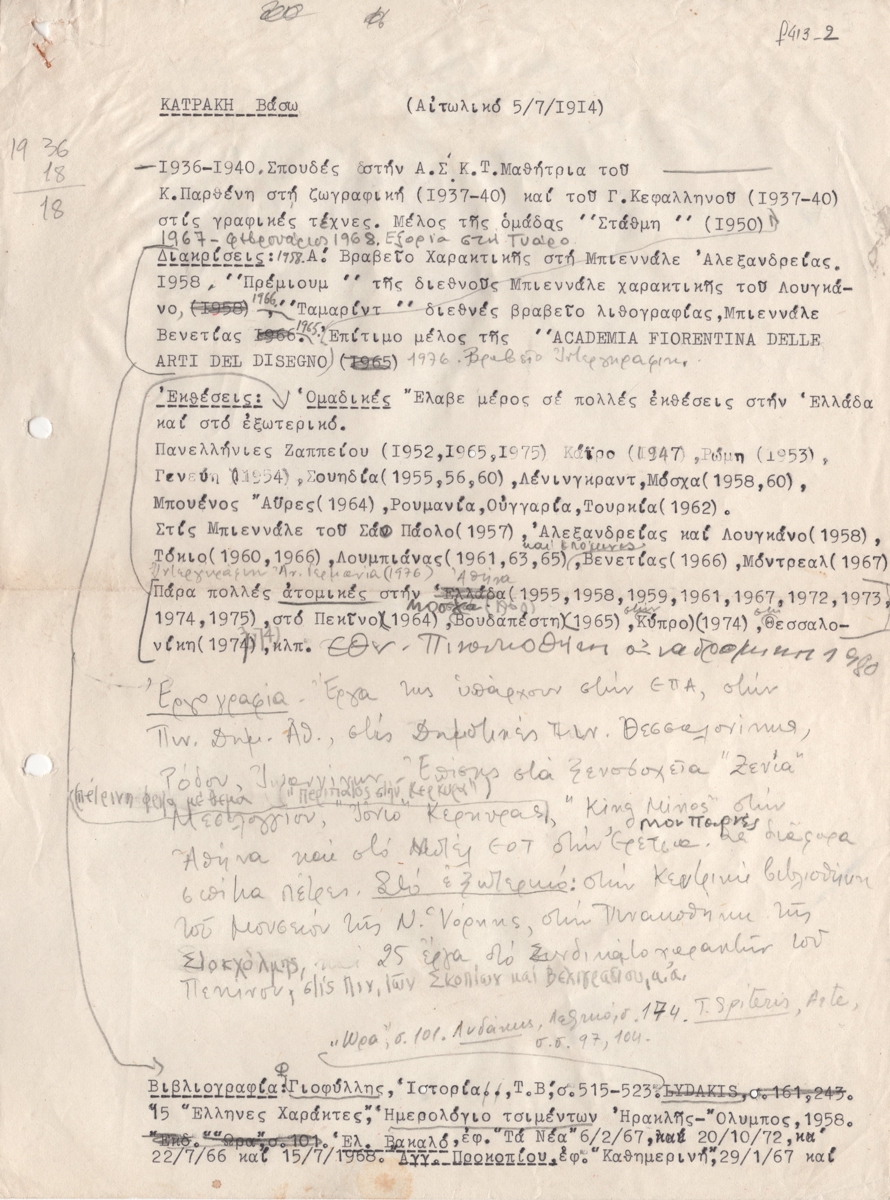 f413-2
ΚΑΤΡΑΚΗ Βάσω (Αἰτωλικό 5/7/1914)
19 36
18
18
—1936-1940.Σπουδές στήν Α.Σ.Κ.Τ.Μαθήτρια τοῦ
Κ.Παρθένη στή ζωγραφική (1937-40) καί τοῦ Γ.Κεφαλληνοῦ (1937-40)
στίς γραφικές τέχνες. Μέλος τῆς ὁμάδας ‘‘Στάθμη ‘‘ (1950)
1967- Φεβρουάριος 1968. Εξορία στη Γυάρο
Διακρίσεις: 1958. Α. Βραβεῖο Χαρακτικῆς στή Μπιεννάλε Ἀλεξανδρείας.
1958 , ‘‘Πρέμιουμ ‘‘ τῆς διεθνοῦς Μπιεννάλε χαρακτικῆς τοῦ Λουγκά-
νο, (1958) 1966, ‘‘Ταμαρίντ ‘‘ διεθνές βραβεῖο λιθογραφίας,Μπιεννάλε
Βενετίας 1966. 1965. Ἐπίτιμο μέλος τῆς ‘‘ACADEMIA FIORENTINA DELLE
ARTI DEL DISEGNO) (1965) 1976. Βραβείο Ἰντεργκραφικ.
Ἐκθέσεις: Ὁμαδικές Ἔλαβε μέρος σέ πολλές ἐκθέσεις στήν Ἑλλάδα
καί στό ἐξωτερικό.
Πανελλήνιες Ζαππείου (1952,1965,1975) Κάϊρο (1947) ,Ρώμη (1953) ,
Γενεύη (1954) ,Σουηδία(1955,56,60) ,Λένινγκραντ,Μόσχα(1958,60) ,
Μπουένος Ἄϋρες(1964) ,Ρουμανία,Οὑγγαρία,Τουρκία(1962) .
Στίς Μπιεννάλε τοῦ Σάο Πάολο(1957) ,Ἀλεξανδρείας καί Λουγκάνο(1958) ,
καί ἑπόμενες
Τόκιο(1960,1966) ,Λουμπιάνας(1961,63,65) ,Βενετίας(1966) ,Μόντρεαλ(1967)
Ἰντεργκραφικ Ἀν. Γερμανία (1976) Ἀθήνα
Πάρα πολλές ἀτομικές στήν Ἑλλάδα(1955,1958,1959,1961,1967,1972,1973,
Μόσχα (1960) στήν στή
1974,1975) ,στό Πεκῖνο(1964) ,Βουδαπέστη(1965) ,Κύπρο)(1974) ,Θεσσαλο-
νίκη(1974) ,κλπ. Εθν. Πινακοθήκη αναδρομική 1980
Ἐργογραφία. Ἔργα της ὑπάρχουν στήν ΕΠΑ, στήν
Πιν. Δημ. Ἀθ., στίς Δημοτικές Πιν. Θεσσαλονίκης,
Ρόδου, Ἰωαννίνων. Ἐπίσης στά ξενοδοχεῖα "Ξενία"
(πέτρινη με θέμα ("Περίπατος στήν Κέρκυρα")
Μεσολογγίου, "Ἰόνιο" Κερκύρας, "King Minos" στήν
Μον Παρνές
Ἀθήνα καί στό Μοτέλ ΕΟΤ στήν Ἐρέτρια. σέ διάφορα
σπίτια πέτρες. Στό ἐξωτερικό: στήν Κεντρική Βιβλιοθήκη
τοῦ Μουσείου τῆς Ν. Ὑόρκης, στήν Πινακοθήκη τῆς
Στοκχόλμης, καί 25 ἔργα στό Συνδικάτο χαρακτῶν τοῦ
Πεκίνου, στίς Πιν. τῶν Σκοπίων καί Βελιγραδίου, α.ἀ.
"Ὥρα", σ. 101. Λυδάκης, Λεξικό, σ. 174. T. Spiteris, Arte,
σ.σ. 97, 104.
Βιβλιογραφία: Φ Γιοφύλλης, Ἱστορία,,,Τ.Β,σ.515-523.LYDAKIS,σ.161,243.
15 Ἕλληνες Χαράκτες", Ἡμερολόγιο τσιμέντων Ἡρακλῆς-Ὄλυμπος,1958.
Ἐκδ. "Ὥρα",σ.101. Ἑλ. Βακαλό,ἐφ."Τά Νέα"6/2/67,καί 20/10/72,κα
22/7/66 καί 15/7/1968. Ἀγγ. Προκοπίου,ἐφ."Καθημερινή",29/1/67 καί